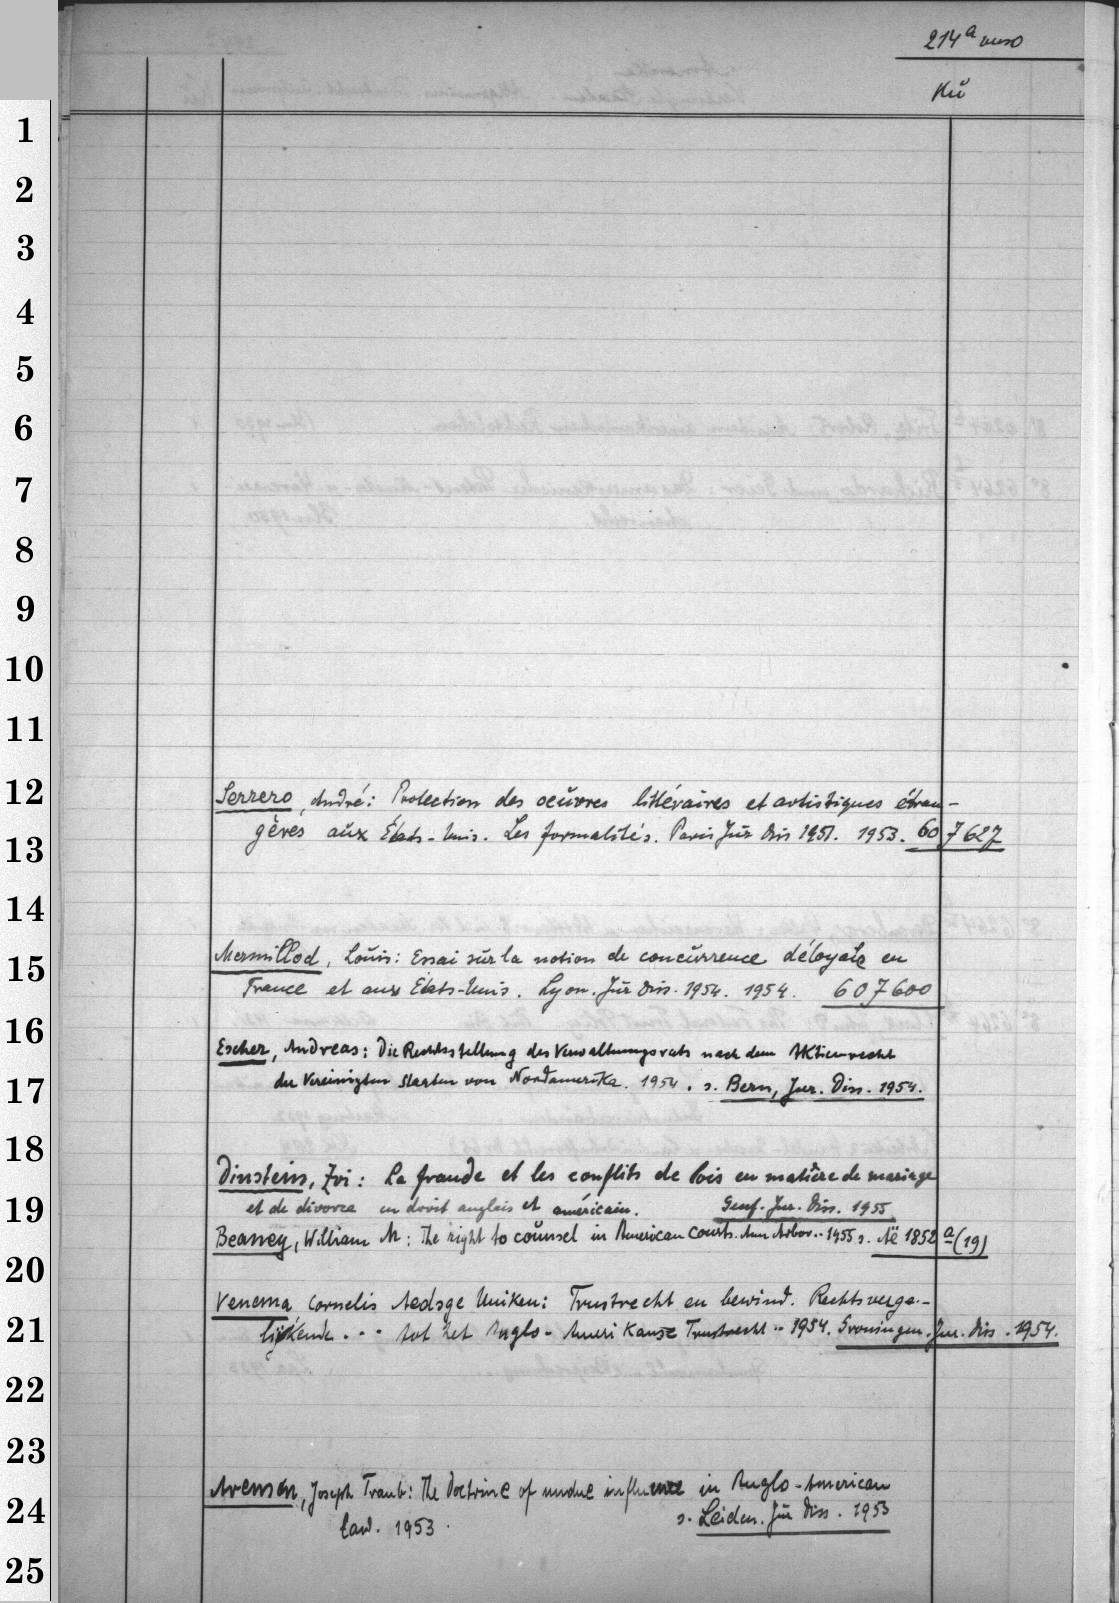 214a verso
Kü
1
2
3
4
5
6
7
8
9
10
11
12
Serrero, André: Protection des oeuvres littéraires et artistiques étran-
gères aux États-Unis. Les formalités. Paris Jur Dis 1951. 1953. 607627
13
14
Mermillod, Louis: Essai sur la notion de concurrence déloyale en
15
France et aux États-Unis. Lyon. Jur Diss. 1954. 1954. 607600
16
Escher, Andreas: Die Rechtsstellung des Verwaltungsrats nach dem Aktienrecht
17
der Vereinigten Staaten von Nordamerika. 1954. s. Bern, Jur. Diss. 1954.
18
Dinstein, Zvi: La fraude et les conflits de lois en matière de mariage
19
et de divorce en droit anglais et américain. Genf. Jur. Diss. 1955
Beaney, William M: The right to counsel in American courts. Ann Arbor.. 1955 s. Aë 1852 a (19)
20
Venema Cornelis Aedsge Uniken: Trustrecht en bewind. Rechtsverge-
21
lijkende ... tot het Anglo-Amerikanse Trustrecht.. 1954. Groningen. Jur. Diss. 1954.
22
23
Arenson, Joseph Traub: The Doctrine of undue influence in Anglo-American
24
law. 1953. s. Leiden. Jur Diss. 1953
25